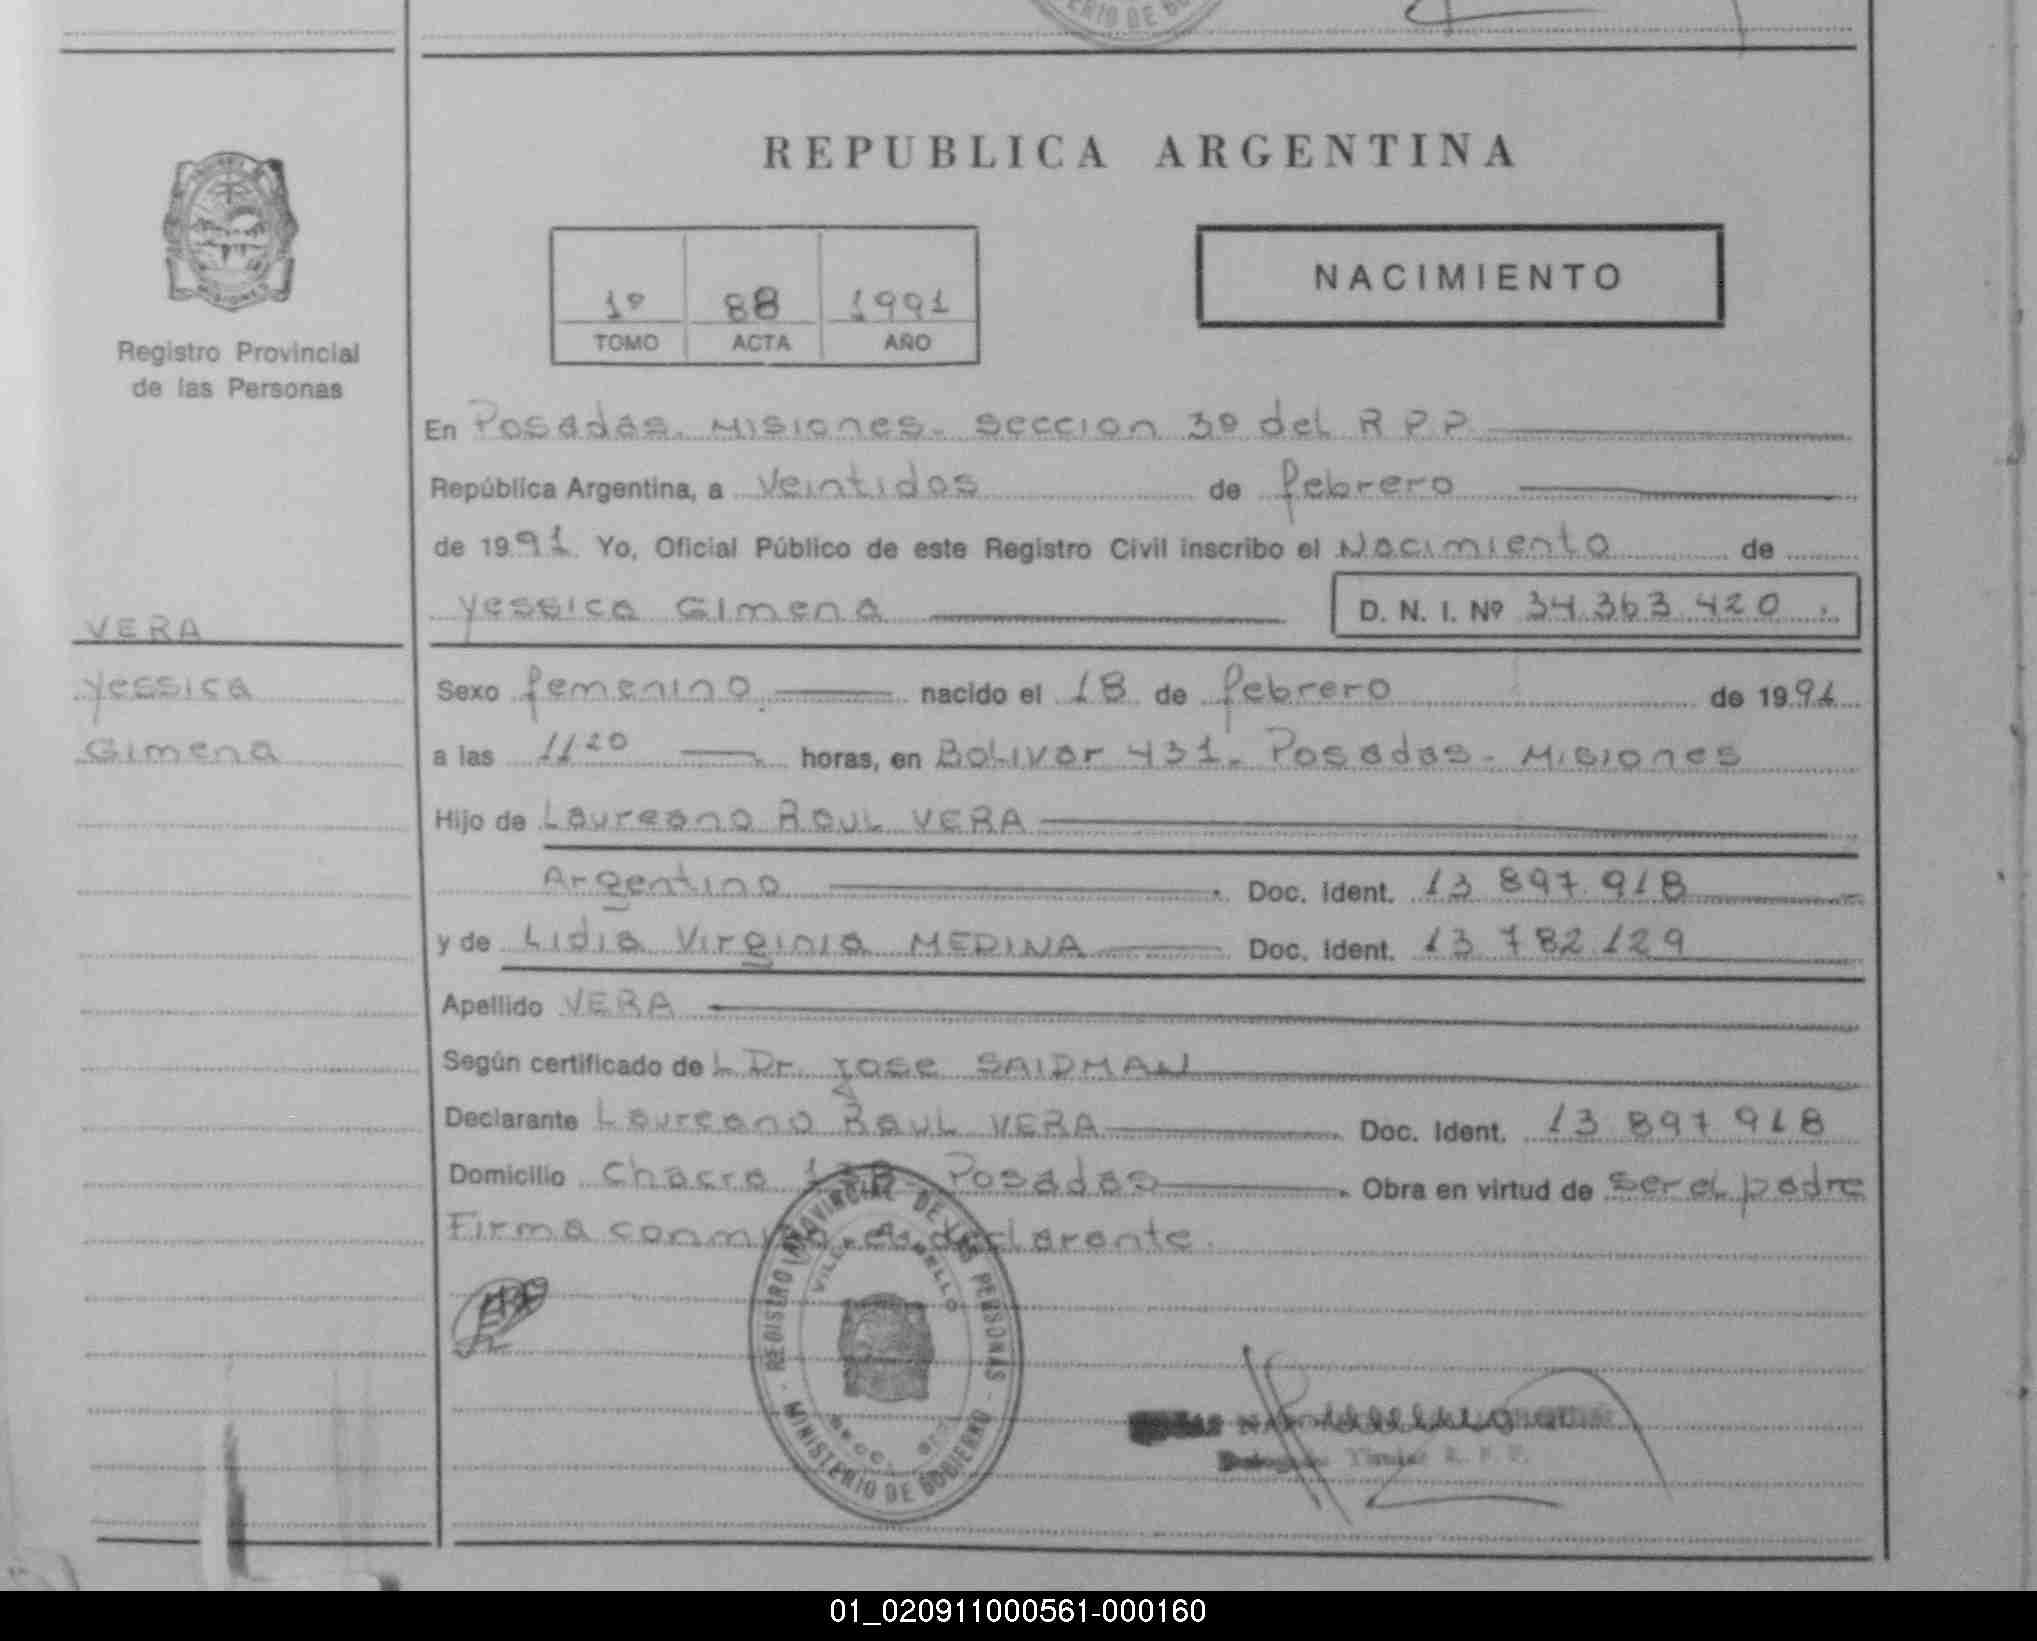 REPUBLICA ARGENTINA
NACIMIENTO
1º 88 1991
TOMO ACTA AÑO
Registro Provincial
de las Personas
En Posadas. Misiones. Seccion 3º del R P P
República Argentina, a Veintidos de febrero
de 1991 Yo, Oficial Público de este Registro Civil inscribo el Nacimiento de
Yessica Gimena D. N. I. Nº 34.363.420
VERA
Yessica
Gimena
Sexo femenino nacido el 18 de febrero de 1991
a las 11 20 horas, en Bolivar 431. Posadas - Misiones
Hijo de Laureano Raul VERA
Argentino Doc. Ident. 13 897.918
y de Lidia Virginia MEDINA Doc. Ident. 13 782.129
Apellido VERA
Según certificado de L Dr. Jose SAIDMAN
Declarante Laureano Raul VERA Doc. Ident. 13 897 918
Domicilio Chacra Posadas Obra en virtud de ser el padre
Firma declarante.
REGISTRO PROVINCIAL DE LAS PERSONAS
MINISTERIO DE GOBIERNO
R. P. P.
01_020911000561-000160